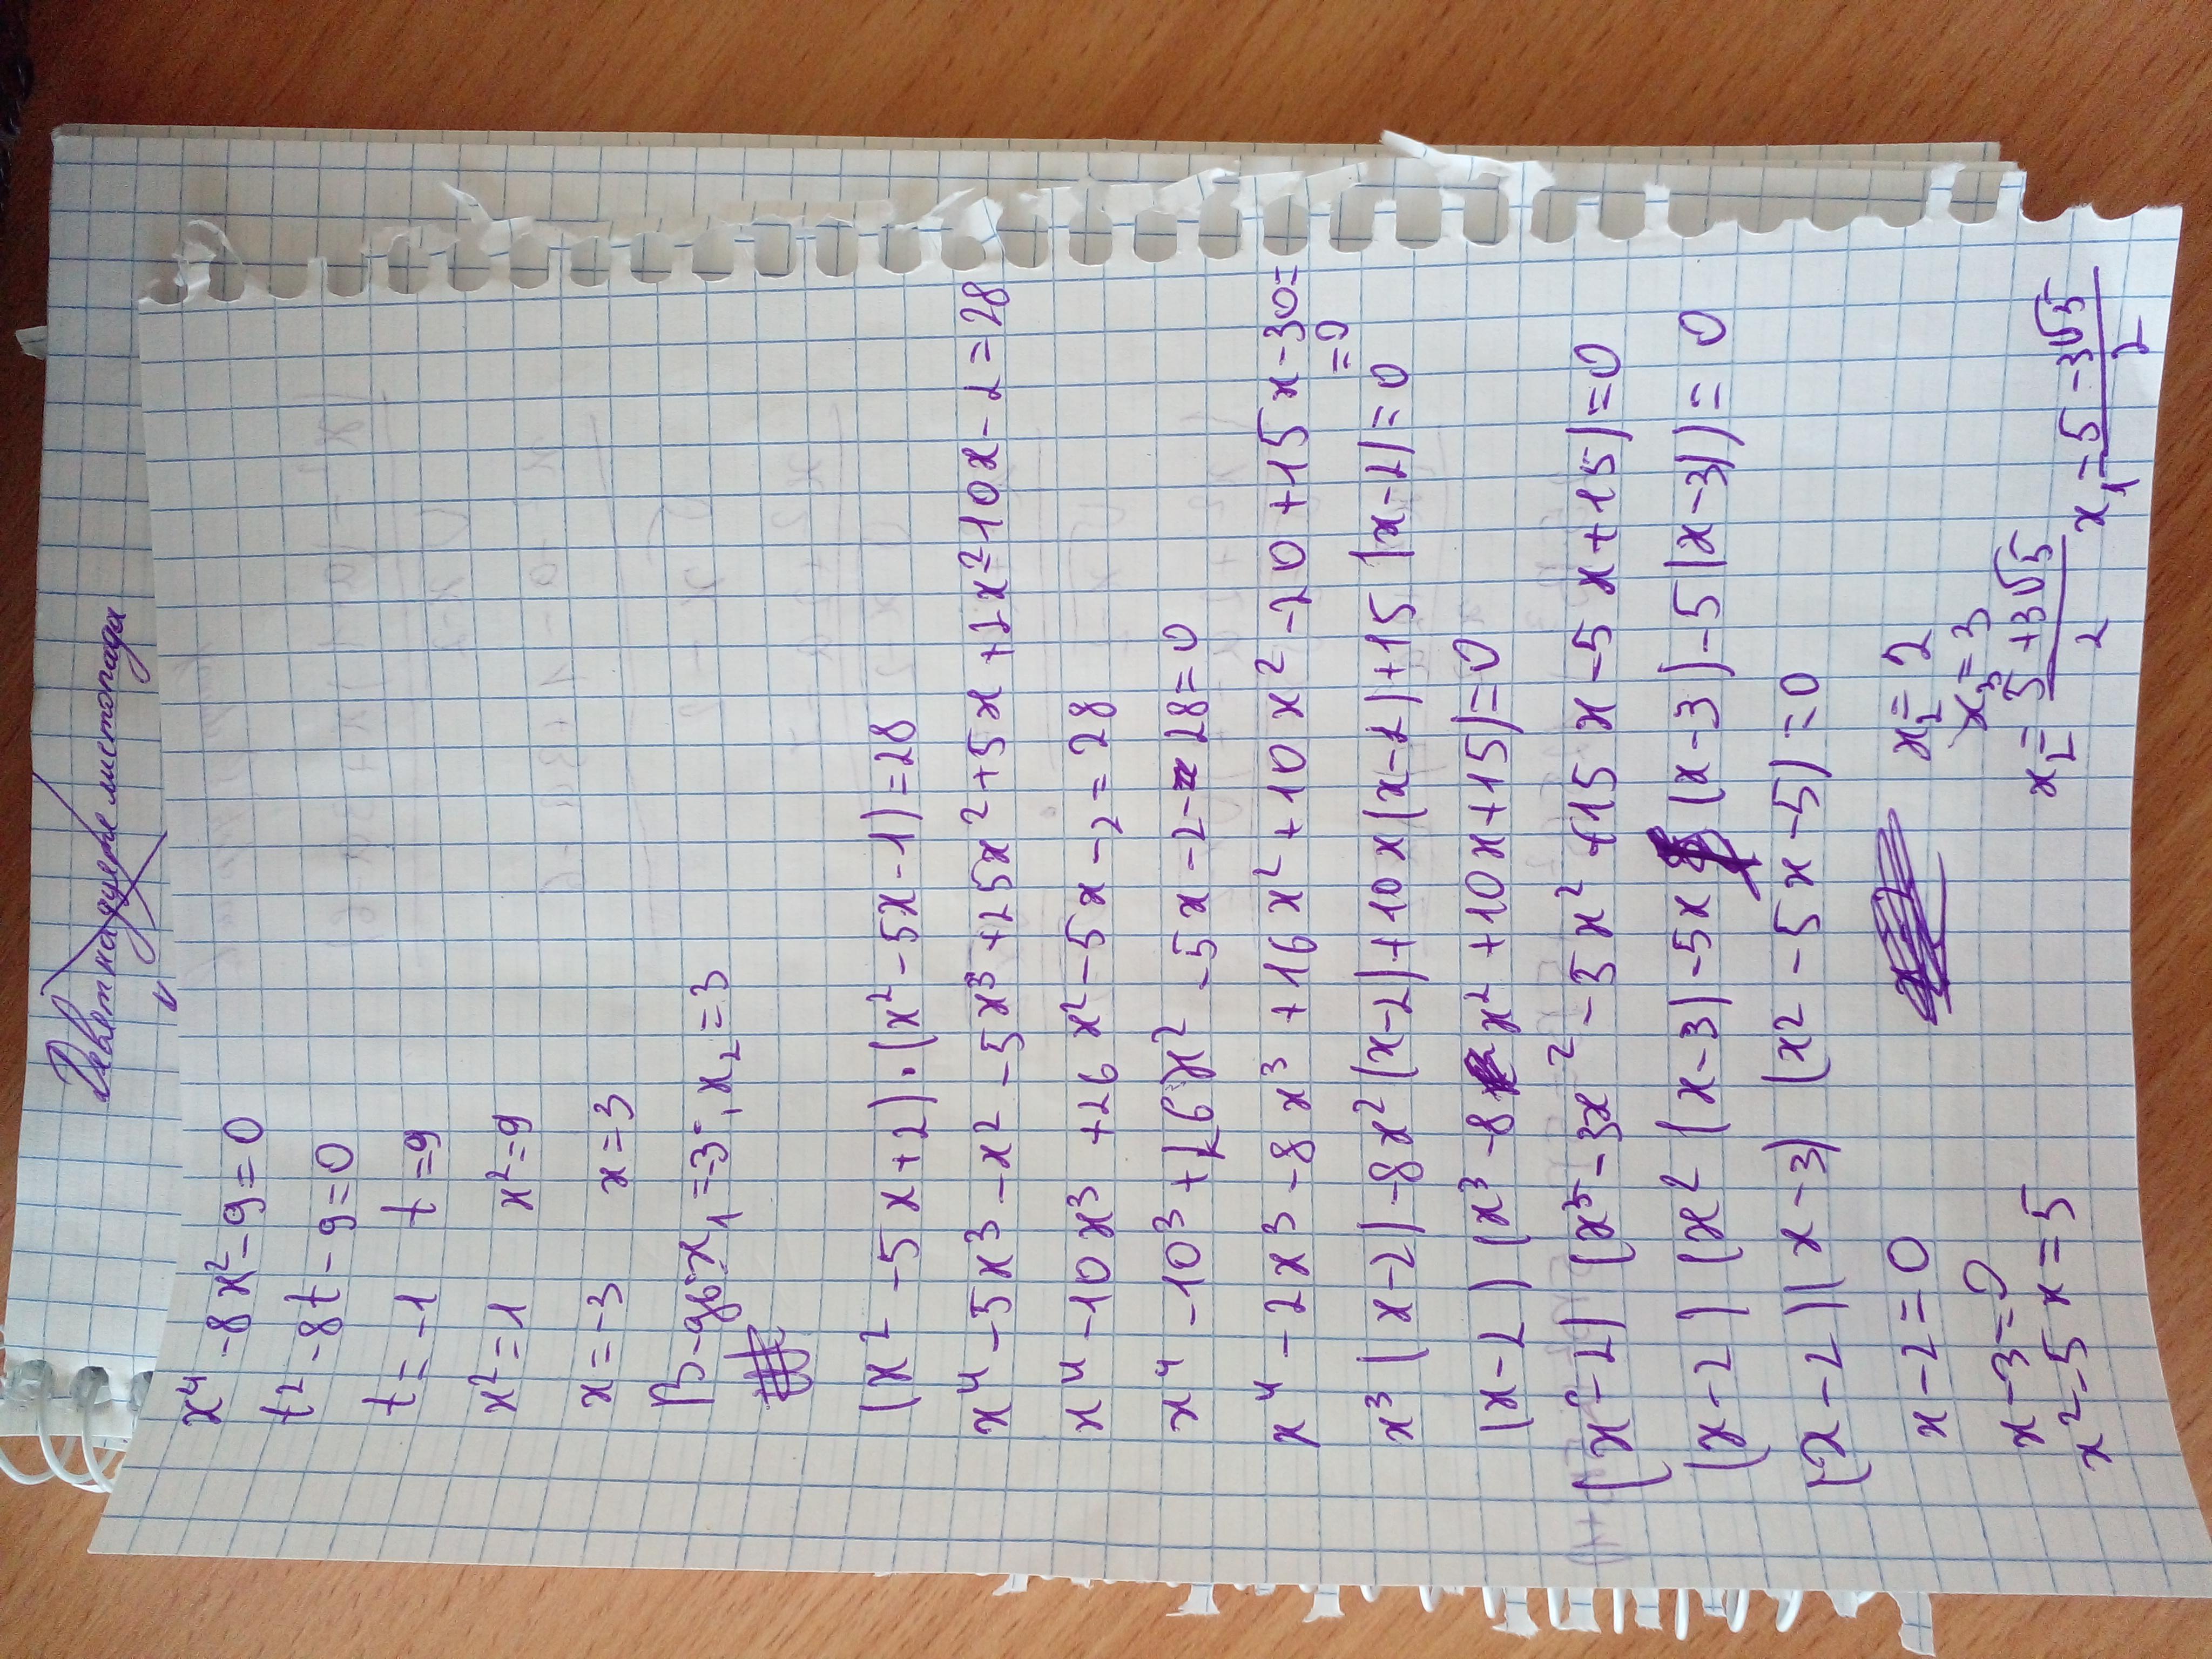 Дев'ятнадцяте листопада
x⁴-8x²-9=0
t²-8t-9=0
t=-1 t=9
x²=1 x²=9
x=-3 x=3
В-дь: x₁=-3; x₂=3
(x²-5x+2)·(x²-5x-1)=28
x⁴-5x³-x²-5x³+25x²+5x+2x²-10x-2=28
x⁴-10x³+26x²-5x-2=28
x⁴-10³+26x²-5x-2-28=0
x⁴-2x³-8x³+16x²+10x²-20+15x-30=
=0
x³(x-2)-8x²(x-2)+10x(x-2)+15(x-2)=0
(x-2)(x³-8x²+10x+15)=0
(x-2)(x³-3x²-3x²+15x-5x+15)=0
(x-2)(x²(x-3)-5x(x-3)-5(x-3))=0
(x-2)(x-3)(x²-5x-5)=0
x-2=0 x₂=2
x-3=0 x₃=3
x²-5x=5 x₂=5+3√5/2 x₁=5-3√5/2